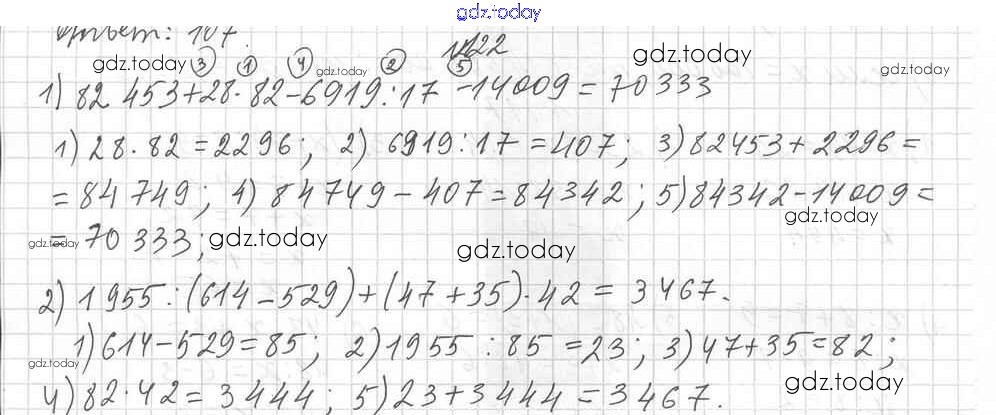 gdz.today
Ответ: 107.
№122
gdz.today ③ ① ④ gdz.today ② ⑤ gdz.today gdz.today
1) 82 453+28·82-6919:17-14009=70333
1) 28·82=2296; 2) 6919:17=407; 3) 82453+2296=
=84749; 4) 84749-407=84342; 5) 84342-14009=
gdz.today
gdz.today =70 333; gdz.today gdz.today
2) 1955:(614-529)+(47+35)·42=3467.
1) 614-529=85; 2) 1955:85=23; 3) 47+35=82;
gdz.today gdz.today
4) 82·42=3444; 5) 23+3444=3467.